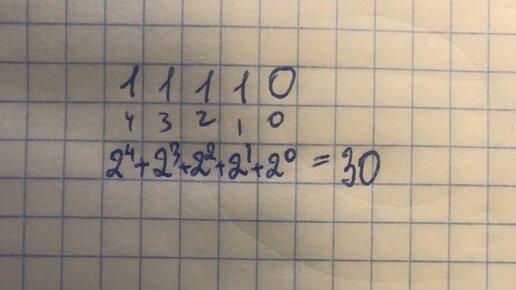 1 1 1 1 0
4 3 2 1 0
2⁴+2³+2²+2¹+2⁰ = 30